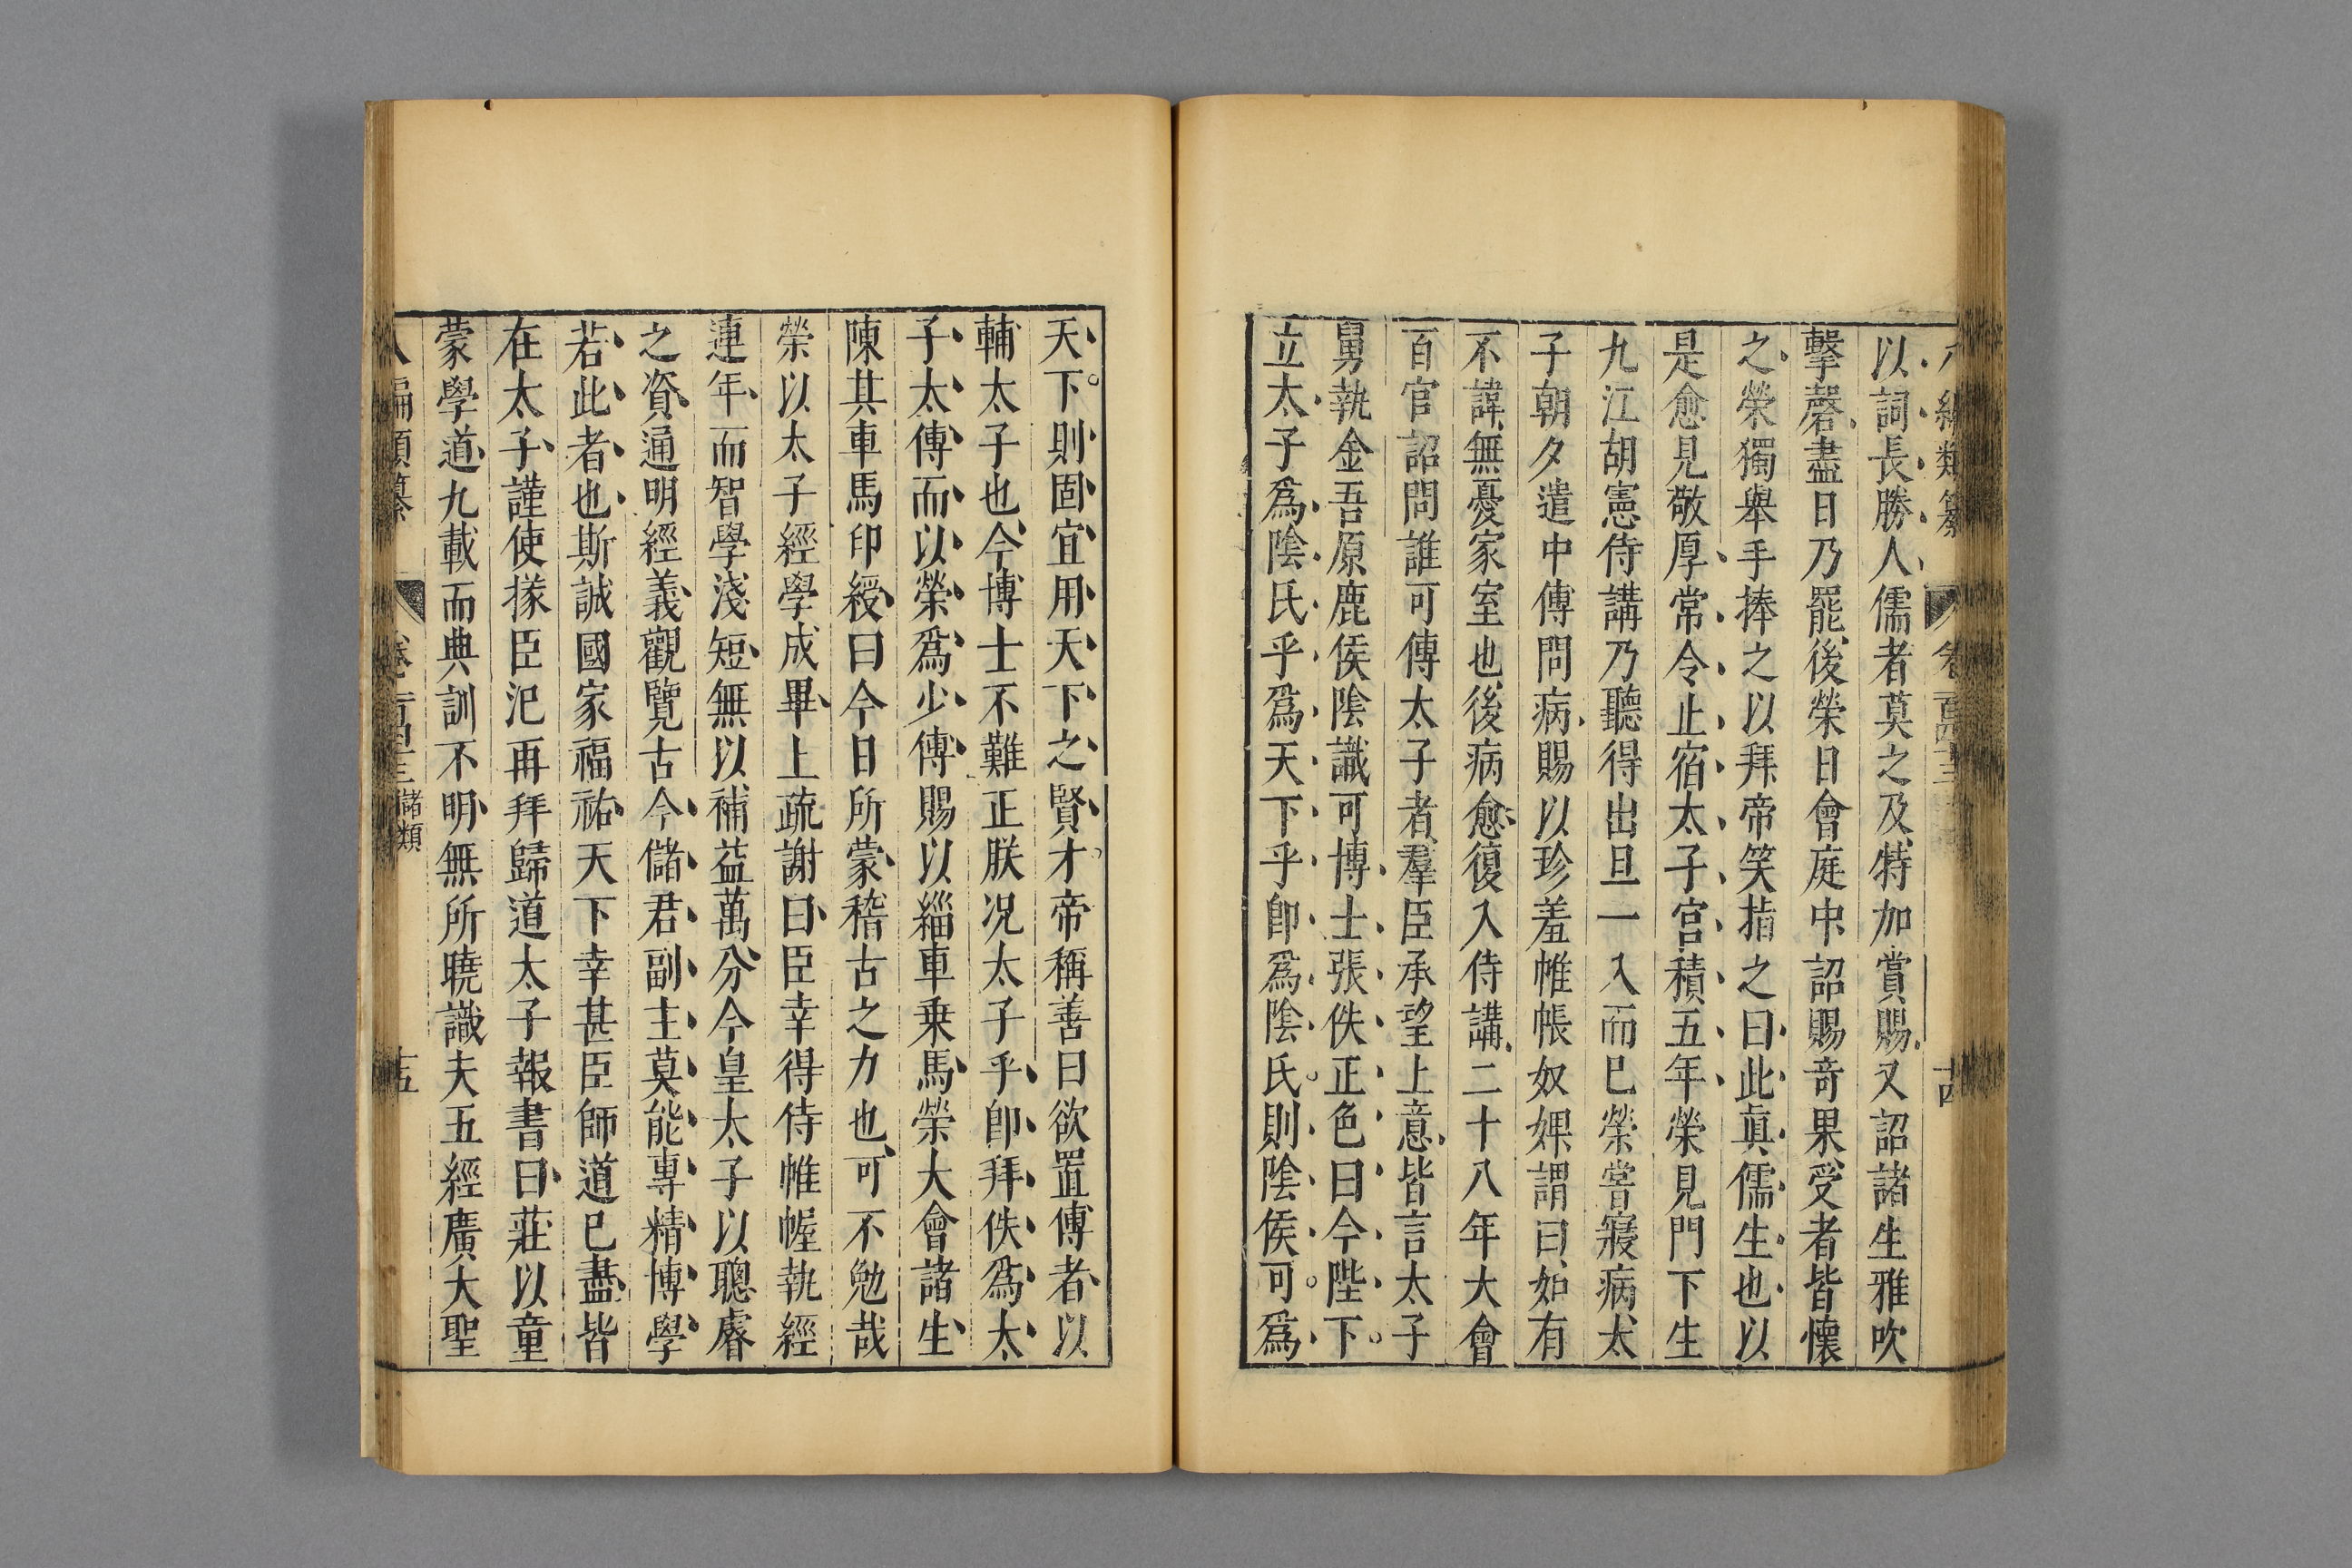 以詞長勝人儒者莫之及特加賞賜又詔諸生雅吹
擊磬盡日乃罷後榮日會庭中詔賜奇果受者皆懷
之榮獨舉手捧之以拜帝笑指之曰此眞儒生也以
是愈見敬厚常令止宿太子宮積五年榮見門下生
九江胡憲侍講乃聽得出旦一入而已榮嘗寢病太
子朝夕遣中傅問病賜以珍羞帷帳奴婢謂曰如有
不諱無憂家室也後病愈復入侍講二十八年大會
百官詔問誰可傅太子者羣臣承望上意皆言太子
舅執金吾原鹿侯陰識可博士張佚正色曰今陛下
立太子爲陰氏乎爲天下乎卽爲陰氏則陰侯可爲
天下則固宜用天下之賢才帝稱善曰欲置傅者以
輔太子也今博士不難正朕况太子乎卽拜佚爲太
子太傅而以榮爲少傅賜以緇車乗馬榮大會諸生
陳其車馬印綬曰今日所蒙稽古之力也可不勉哉
榮以太子經學成畢上疏謝曰臣幸得侍帷幄執經
連年而智學淺短無以補益萬分今皇太子以聰睿
之資通明經義觀覽古今儲君副主莫能專精博學
若此者也斯誠國家福祐天下幸甚臣師道已盡皆
在太子謹使掾臣汜再拜歸道太子報書曰莊以童
蒙學道九載而典訓不明無所曉識夫五經廣大聖
儲類